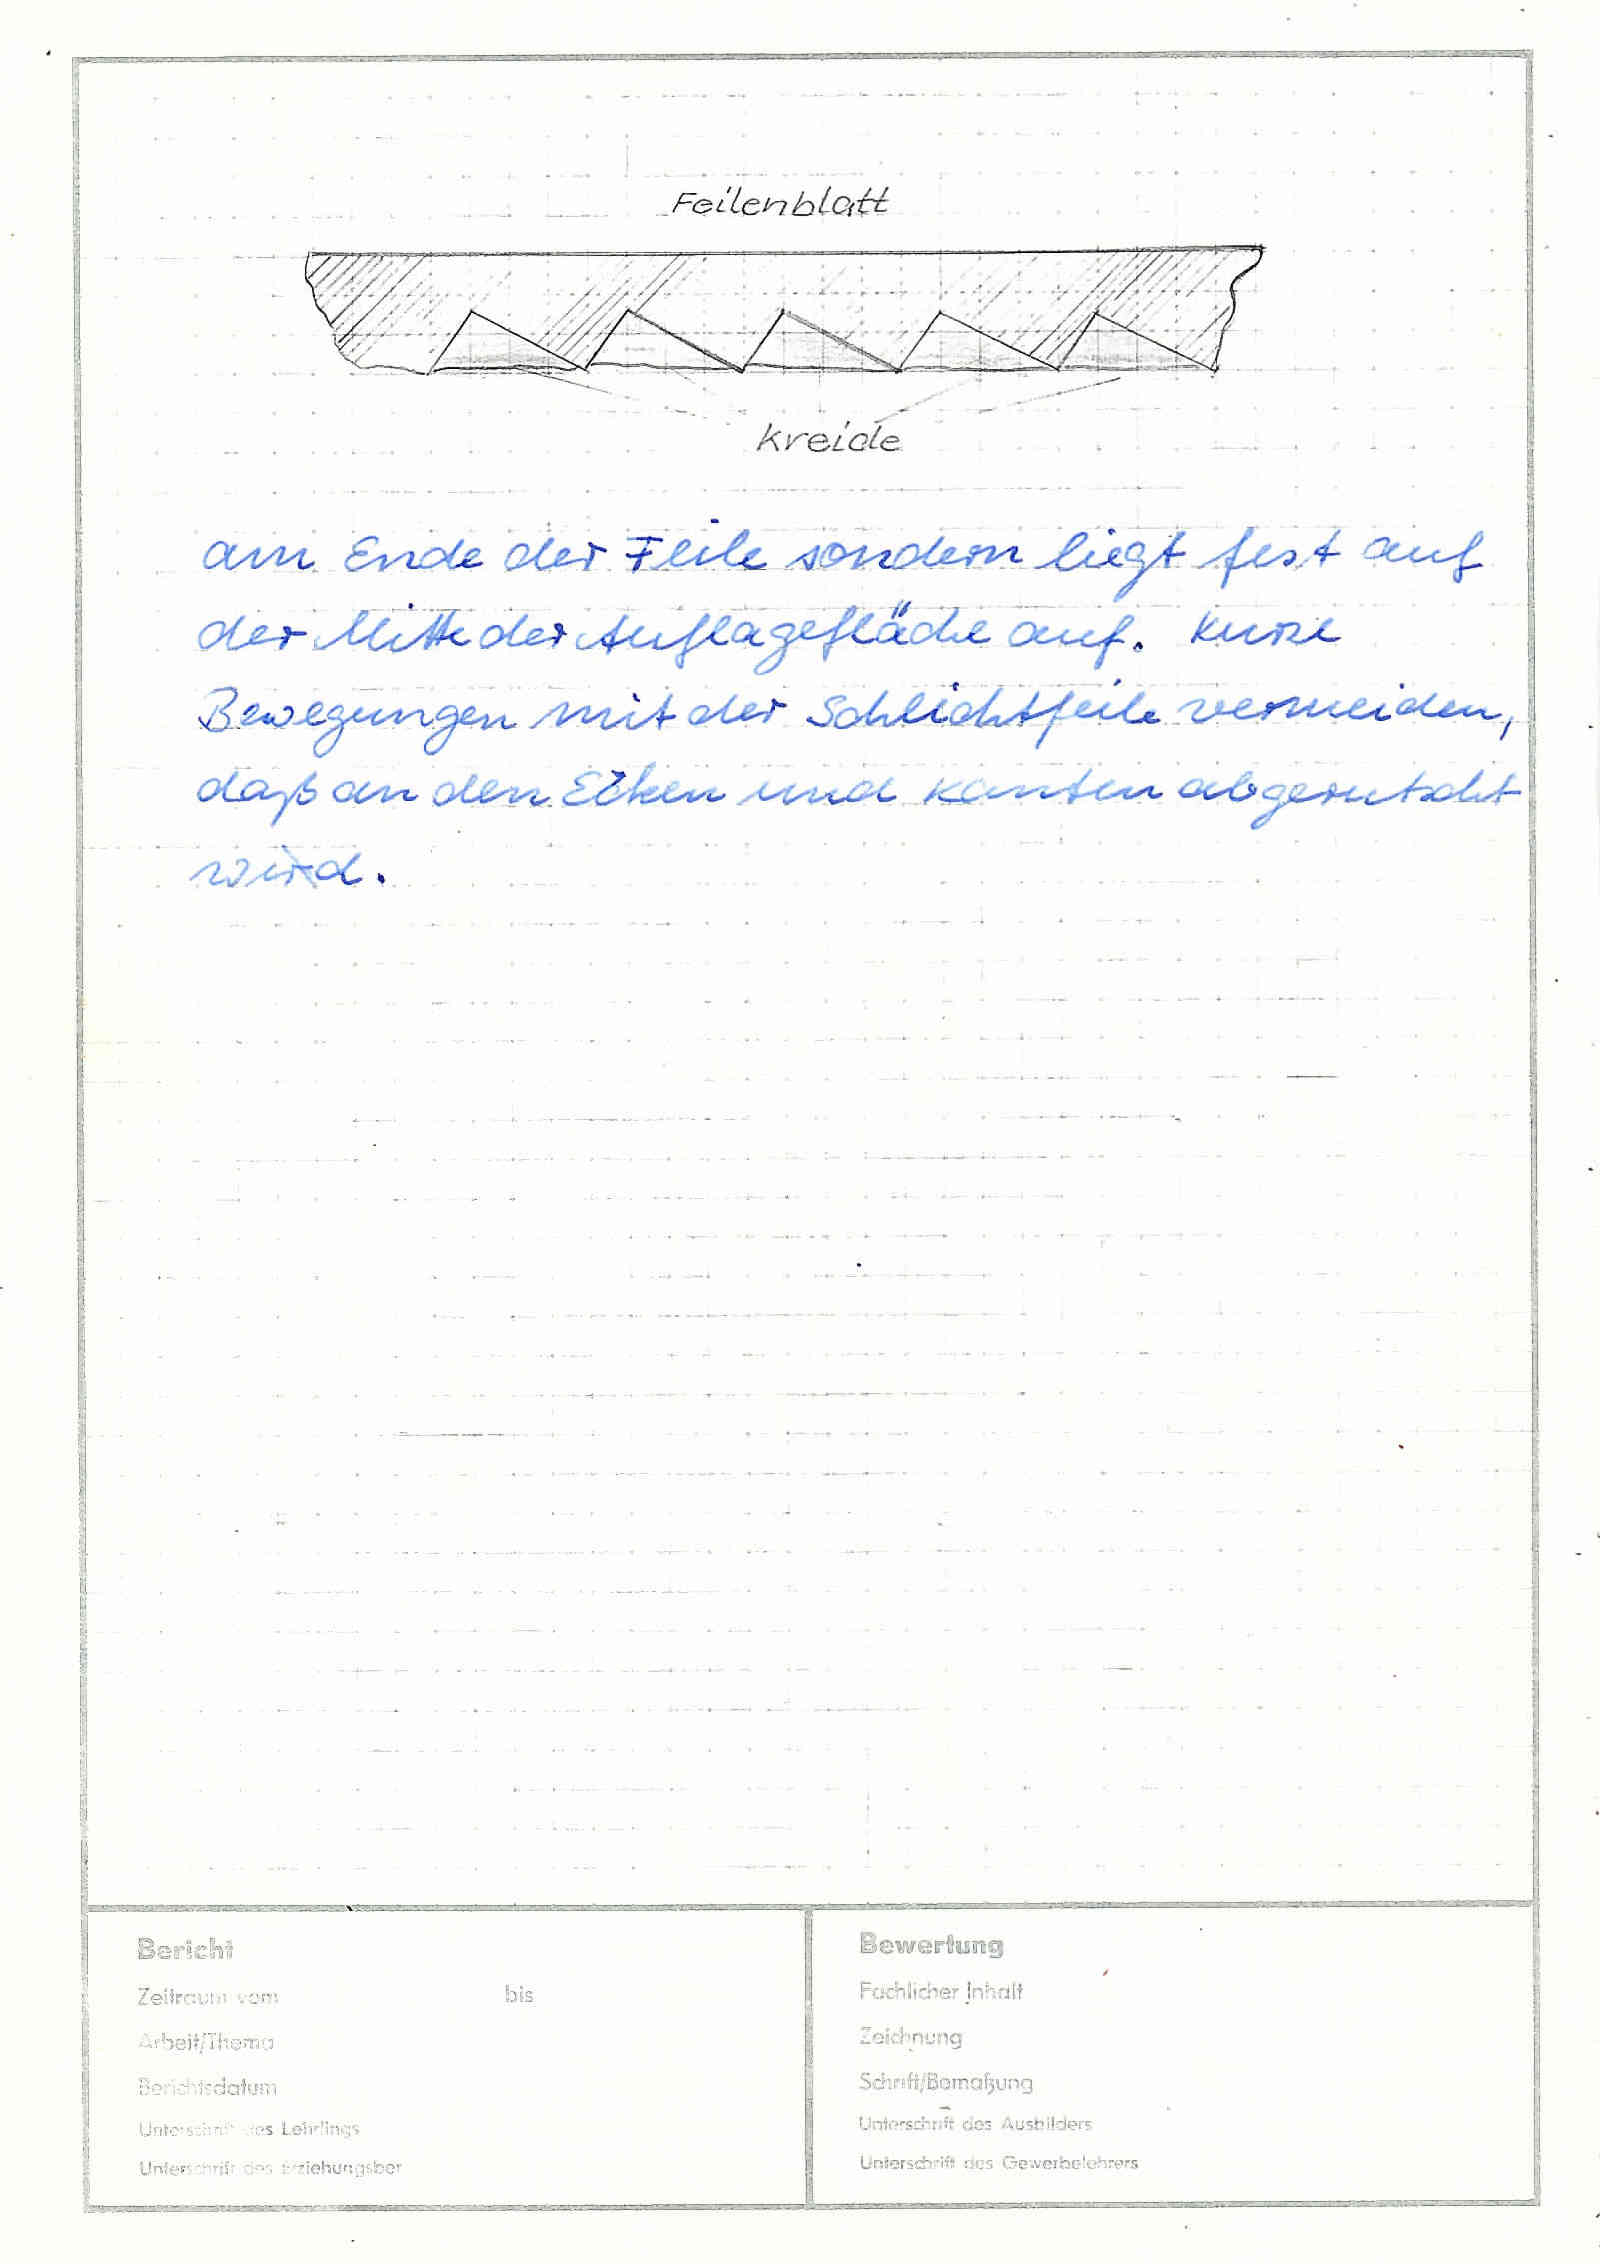 Feilenblatt
Kreide
am Ende der Feile sondern liegt fest auf
der Mitte der Auflagefläche auf. Kurze
Bewegungen mit der Schlichtfeile vermeiden,
daß an den Ecken und Kanten abgerutscht
wird.
Bericht
Zeitraum vom bis
Arbeit/Thema
Berichtsdatum
Unterschrift des Lehrlings
Unterschrift des Erziehungsber
Bewertung
Fachlicher Inhalt
Zeichnung
Schrift/Bemaßung
Unterschrift des Ausbilders
Unterschrift des Gewerbelehrers